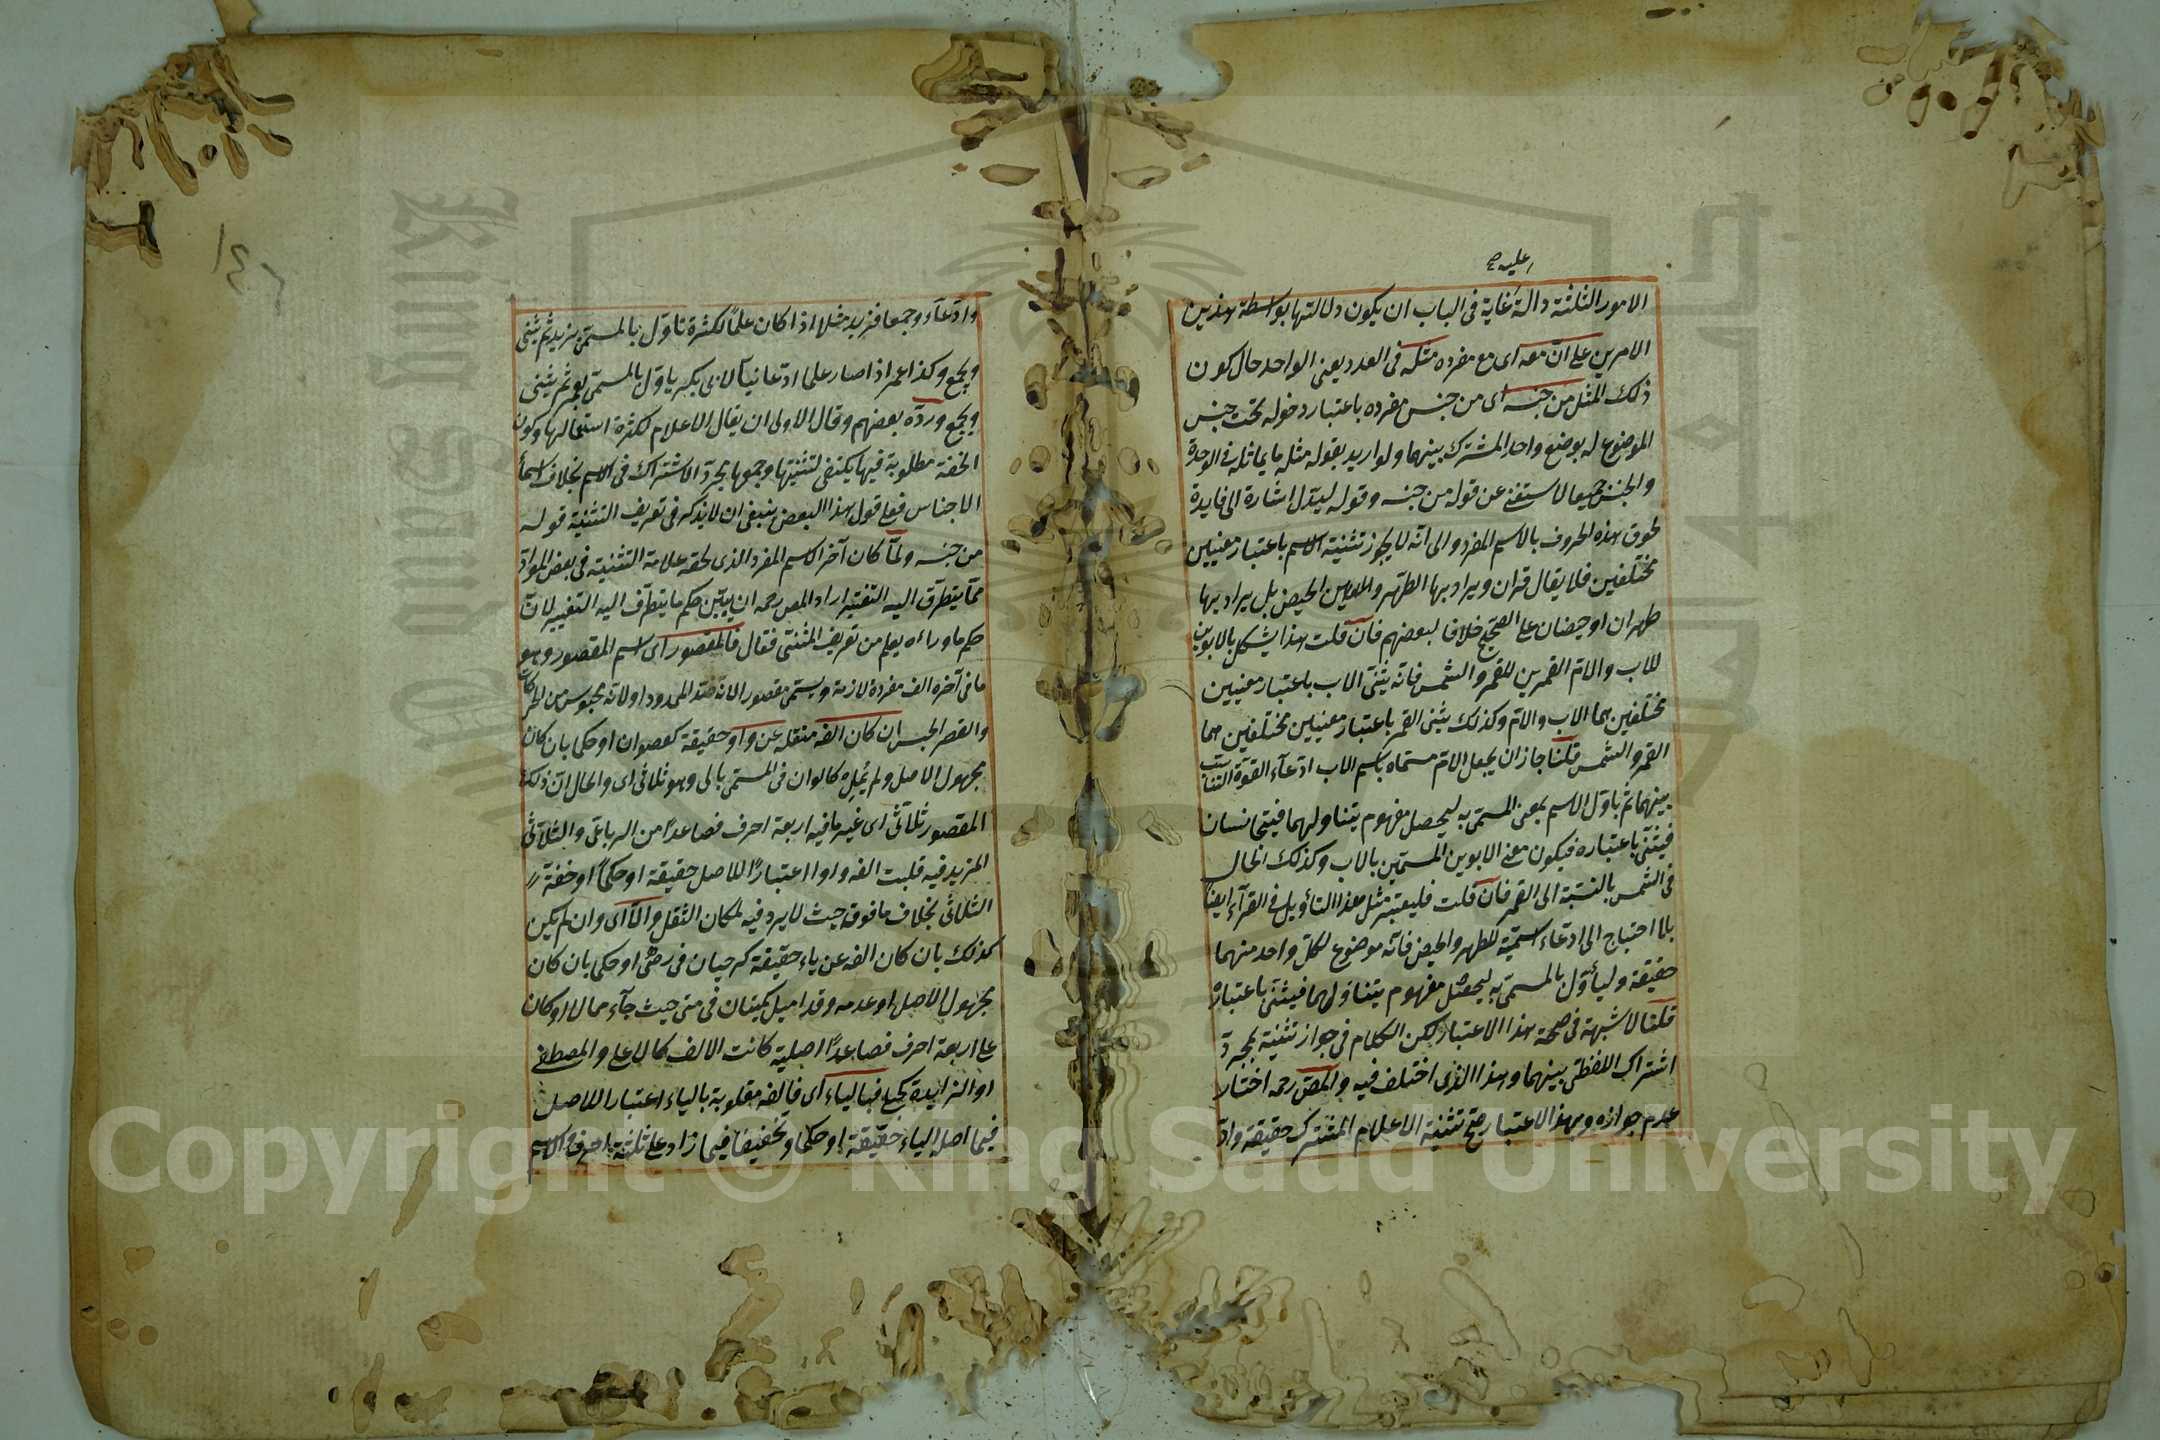 عليه صح
الامور الثلثة دالة غاية فى الباب ان يكون دلالتها بواسطة هذين
الامرين على ان معه اى مع مفرده مثله فى العدد يعنى الواحد حال كون
ذلك المثل من جنسه اى من جنس مفرده باعتبار دخوله تحت جنس
الموضوع له بوضع واحد المشترك بينهما ولو اريد بقوله مثله ما يماثله فى الوحدة
والجنس جميعا لاستغنى عن قوله من جنسه وقوله ليدل اشارة الى فايدة
لحوق هذه الحروف بالاسم المفرد والى انه لا يجوز تثنية الاسم باعتبار معنيين
مختلفين فلا يقال قران ويراد بها الطهر والحيض بل يراد بها
طهران او حيضان على الصحيح خلافا لبعضهم فان قلت هذا يشكل بالابوين
للاب والام القمرين للقمر والشمس فانه يثنى الاب باعتبار معنيين
مختلفين هما الاب والام وكذلك يثنى القمر باعتبار معنيين مختلفين هما
القمر والشمس قلنا جاز ان يجعل الام مسماة باسم الاب ادعاء لقوة التناسب
بينهما ثم ياول الاسم بمعنى المسمى به ليحصل مفهوم يتناولهما فيتجانسان
فيثنى باعتباره فيكون معنى الابوين المسمين بالاب وكذلك الحال
فى الشمس بالنسبة الى القمر فان قلت فليعتبر مثل هذا التأويل فى القرآء ايضا
بلا احتياج الى ادعاء اسمية للطهر والحيض فانه موضوع لكل واحد منهما
حقيقة وليأول بالمسمى به ليحصل مفهوم يتناولهما فيثنى باعتباره
قلنا لا شبهة فى صحة هذا الاعتبار لكن الكلام فى جواز تثنية بمجرد
اشتراك اللفظى بينهما وهذا الذى اختلف فيه والمص رحمه اختار
عدم جوازه وبهذا الاعتبار صح تثنية الاعلام المشتركة حقيقة واد
وادعاء وجمعا فزيد مثلا اذا كان علما لكثرة تاول بالمسمى بزيد ثم يثنى
ويجمع وكذا عمر اذا صار علما ادعائيا لابى بكر ياول بالمسمى بعمر ثم يثنى
ويجمع ورده بعضهم وقال الاولى ان يقال الاعلام لكثرة استعمالها وكون
الخفة مطلوبة فيها يكتفى لتثنيتها وجمعها بمجرد الاشتراك فى الاسم بخلاف اسماء
الاجناس فعلى قول هذا البعض ينبغى ان لا يذكر فى تعريف التثنية قوله
من جنسه ولما كان آخر الاسم المفرد الذى لحقه علامة التثنية فى بعض المواد
مما يتطرق اليه التغيير اراد المص رحمه ان يبين حكم ما يتطرق اليه التغيير لان
حكم ما وراءه يعلم من تعريف المثنى فقال فالمقصور اى اسم المقصور وهو
ما فى آخره الف مفردة لازمة ويسمى مقصورا لانه ضد الممدود او لانه محبوس من الحركات
والقصر الحبس ان كان الفه منقلبة عن واو حقيقة كعصوان او حكما بان كان
مجهول الاصل ولم يمل كالوان فى المسمى بالى وهو ثلاثى اى والحال ان ذلك
المقصور ثلاثى اى غير ما فيه اربعة احرف فصاعدا من الرباعى والثلاثى
المزيد فيه قلبت الفه واوا اعتبارا للاصل حقيقة او حكما او خفة
الثلاثى بخلاف ما فوقه حيث لا يرد فيه لمكان الثقل والا اى وان لم يكن
كذلك بان كان الفه عن ياء حقيقة كرحيان فى رحى او حكى بان كان
مجهول الاصل او عدمه وقد اميل كمتيان فى متى حيث جاء ممالا او كان
على اربعة احرف فصاعدا اصلية كانت الالف كالاعلى والمصطفى
او الزايدة كحبلى فبالياء اى فالفه مقلوبة بالياء اعتبارا للاصل
فيما اصله الياء حقيقة او حكما وتخفيفا فيما زاد على ثلثة احرف الاسم
Copyright © King Saud University